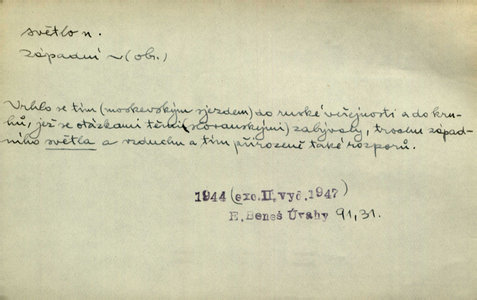 světlo n.
západní ~ (obr.)
Vrhlo se tím (moskevským sjezdem) do ruské veřejnosti a do kru-
hů, jež se otázkami těmi (slovanskými) zabývaly, trochu západ-
ního světla a vzduchu a tím přirozeně také rozporů.
1944 (exc. II. vyd. 1947)
E. Beneš Úvahy 91, 31.